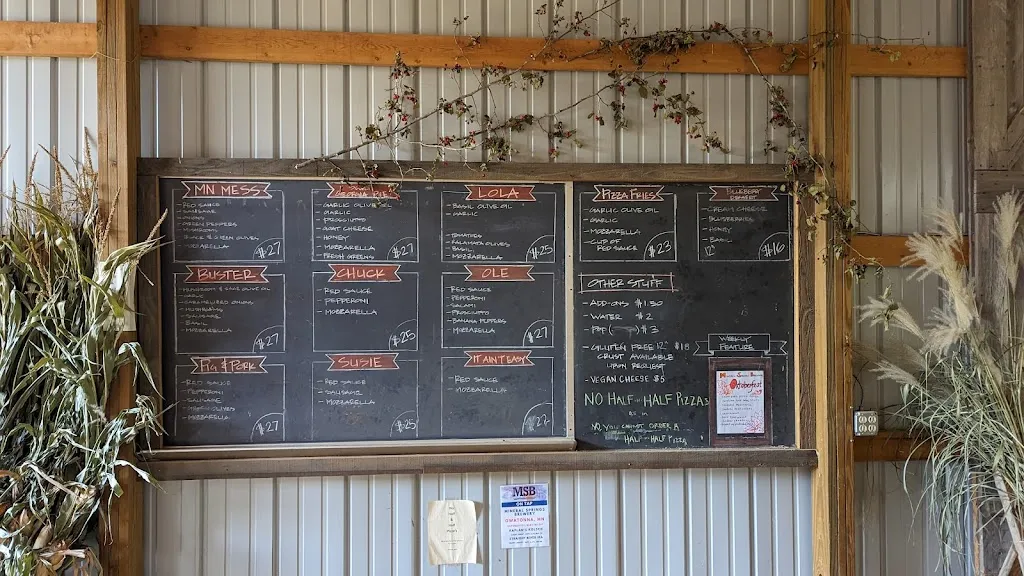 MN MESS
- RED SAUCE
- SAUSAGE
- ONIONS
- GREEN PEPPERS
- MUSHROOMS
- BLACK & GREEN OLIVES
- MOZZARELLA
$27
- GARLIC OLIVE OIL
- GARLIC
- PROSCIUTTO
- GOAT CHEESE
- HONEY
- MOZZARELLA
- FRESH GREENS
$27
LOLA
- BASIL OLIVE OIL
- GARLIC
- TOMATOES
- KALAMATA OLIVES
- BASIL
- MOZZARELLA
$25
BUSTER
- GARLIC
- CARAMELIZED ONIONS
- MUSHROOMS
- SAUSAGE
- BASIL
- MOZZARELLA
CHUCK
- RED SAUCE
- PEPPERONI
- MOZZARELLA
$25
OLE
- RED SAUCE
- PEPPERONI
- SALAMI
- PROSCIUTTO
- BANANA PEPPERS
- MOZZARELLA
$27
PIG & PORK
- RED SAUCE
- PEPPERONI
- MOZZARELLA
$27
SUSIE
- RED SAUCE
- SAUSAGE
- MOZZARELLA
$25
IT AIN'T EASY
- RED SAUCE
- MOZZARELLA
$22
PIZZA FRIES
- GARLIC OLIVE OIL
- GARLIC
- MOZZARELLA
- CUP OF
RED SAUCE
$23
BLUEBERRY
DESSERT
- CREAM CHEESE
- BLUEBERRIES
- HONEY
- BASIL
12"
$16
OTHER STUFF
- ADD-ONS $1.50
- WATER $2
- POP $3
- GLUTEN FREE 12" $18
CRUST AVAILABLE
UPON REQUEST
- VEGAN CHEESE $5
NO HALF-HALF PIZZAS
AS IN
NO, YOU CANNOT ORDER A
HALF-HALF PIZZA
WEEKLY
FEATURE
Oktoberfest
MSB
ON TAP
MINERAL SPRINGS
BREWERY
OWATONNA, MN